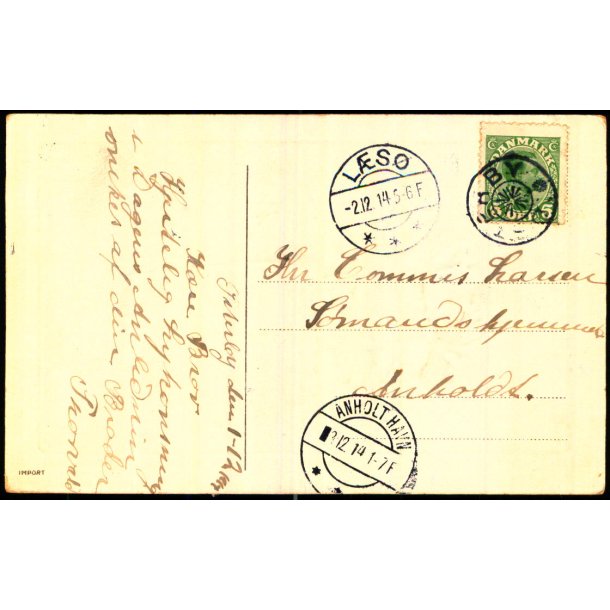 Østerby den 1-12 14
Kære Bror
Hjertelig Lykønskning
i Dagens Anledning
ønskes af din Broder
Thorvald
LÆSØ
-2.12 14 5-6 F
DANMARK
5
Hr Commis Larsen
Sømandshjemmet
Anholdt.
ANHOLT HAVN
2.12 14 1-7 F
IMPORT